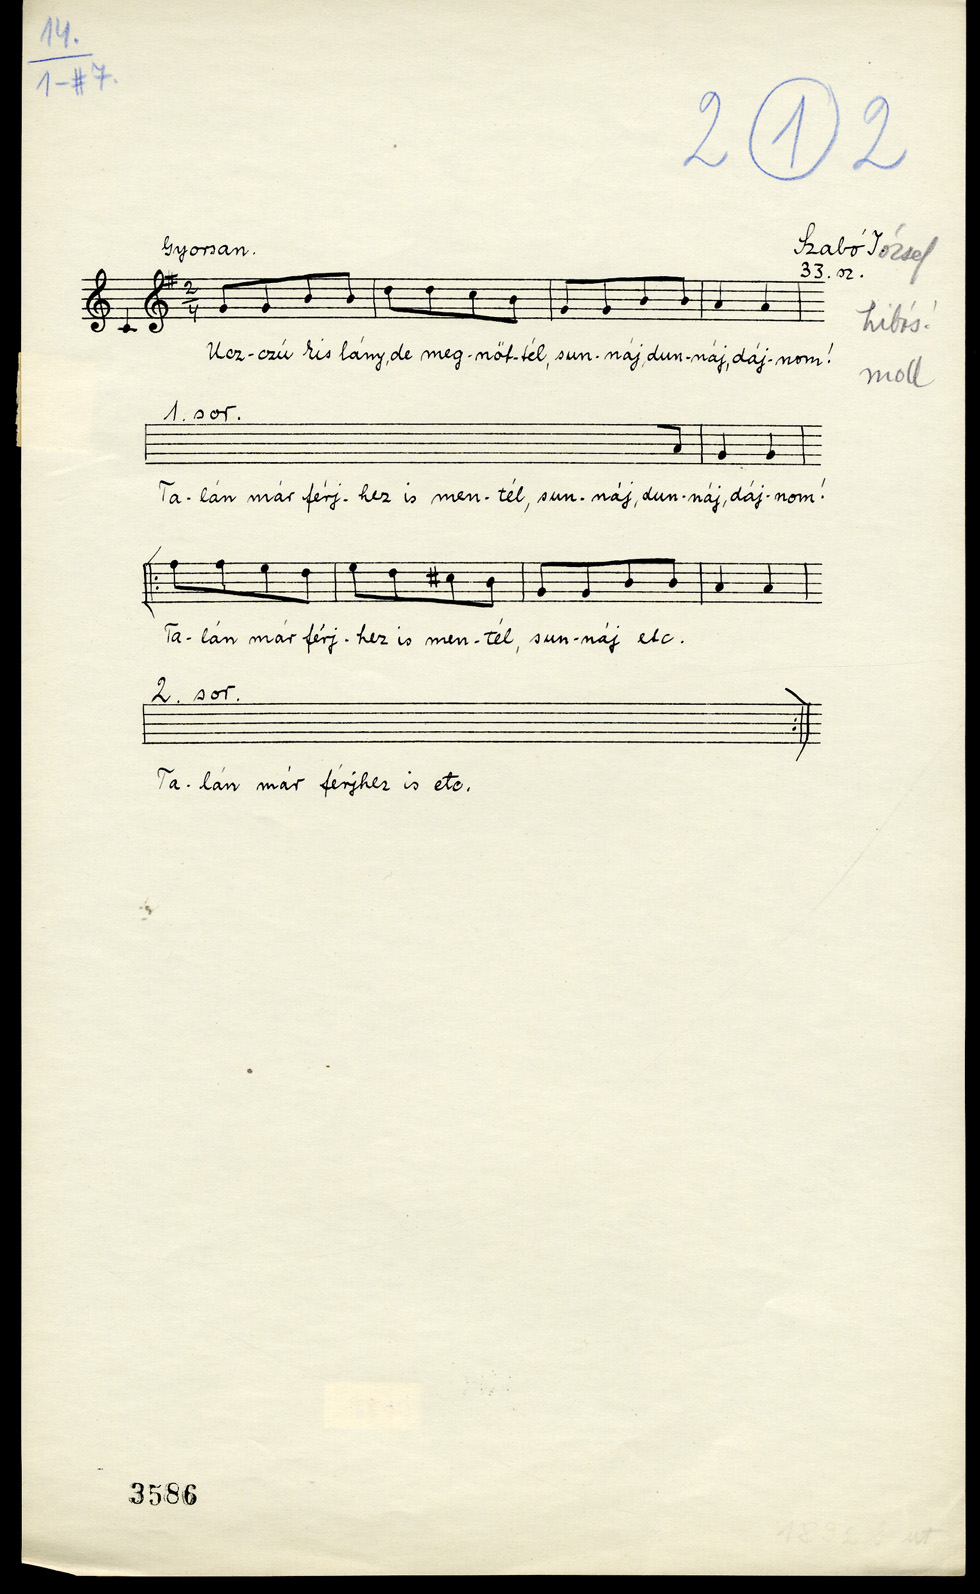 14.
1-#7.
2 1 2
Gyorsan.
Szabó József
33. sz.
2/4
hibás!
Ucz-czú kis lány, de meg-nöt-tél, sun-náj, dun-náj, dáj-nom!
moll
1. sor.
Ta-lán már férj-hez is men-tél, sun-náj, dun-náj, dáj-nom!
Ta-lán már férj-hez is men-tél, sun-náj etc.
2. sor.
Ta-lán már férjhez is etc.
3586